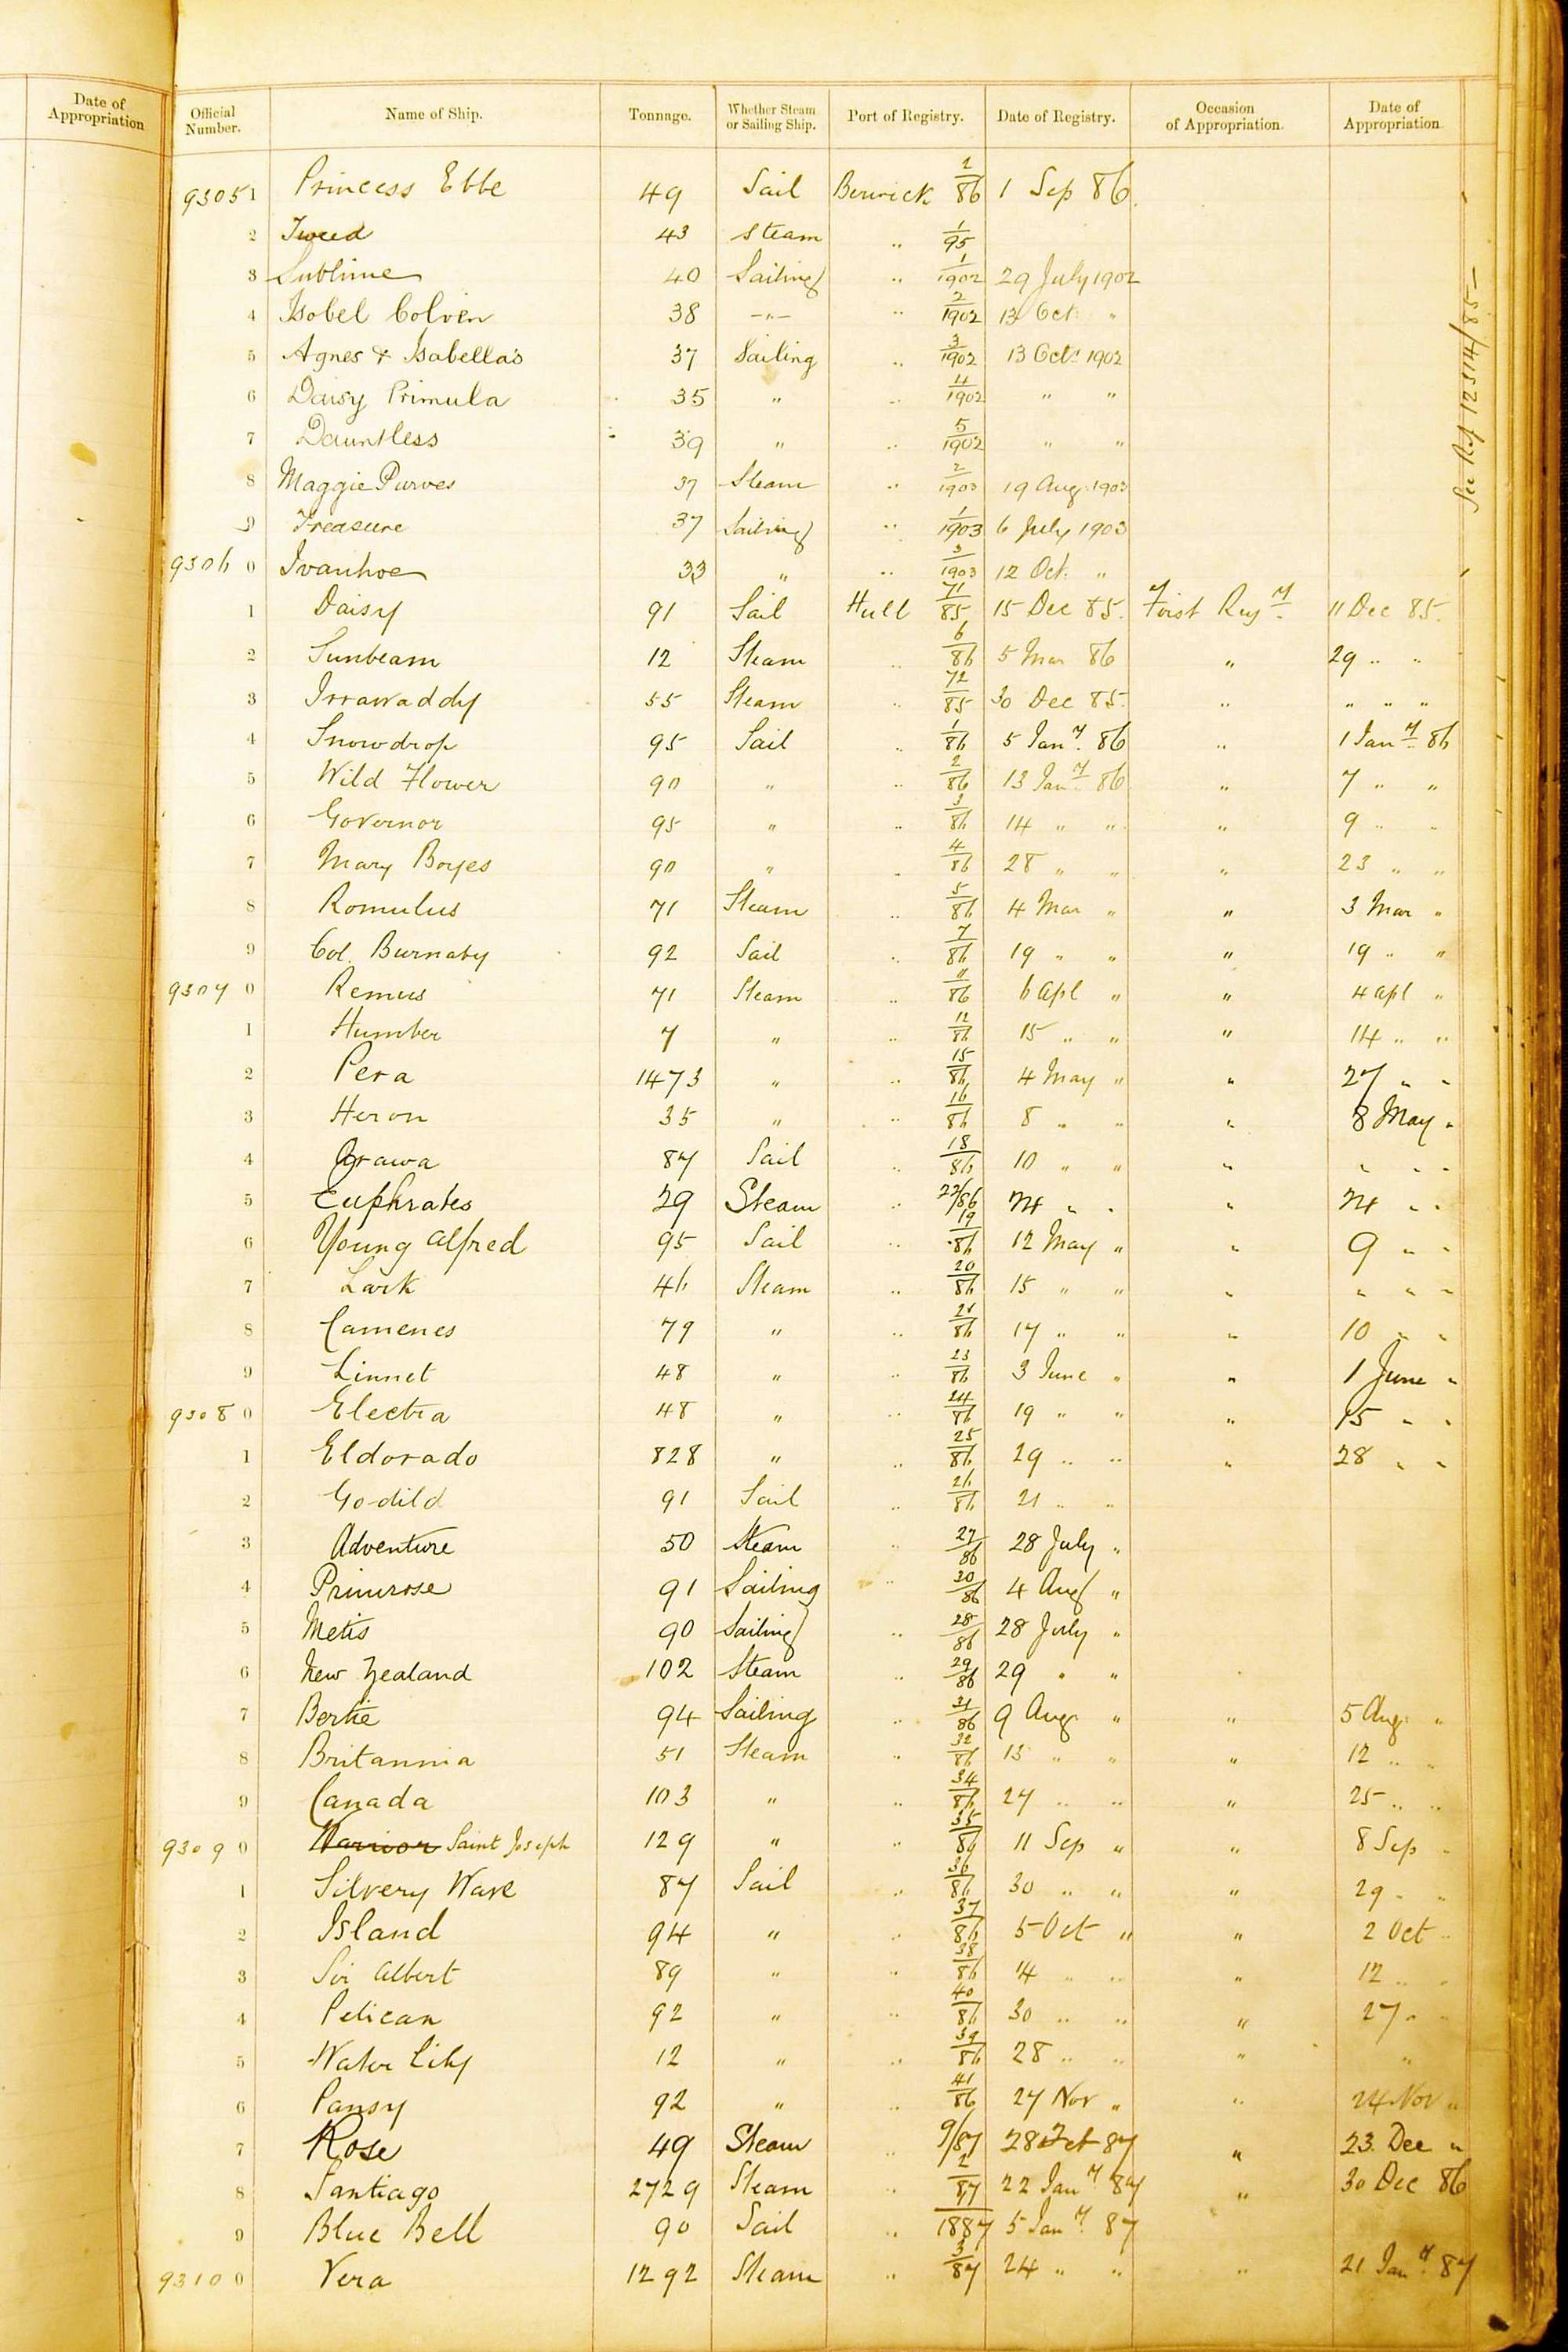 Date of Appropriation
Official Number. Name of Ship. Tonnage. Whether Steam or Sailing Ship. Port of Registry. Date of Registry. Occasion of Appropriation. Date of Appropriation.
93051 Princess Ebbe 49 Sail Berwick 1/86 1 Sep 86.
2 Tweed 43 Steam " 1/95
3 Sublime 40 Sailing " 1/1902 29 July 1902
4 Isobel Colven 38 -"- " 2/1902 13 Oct "
5 Agnes & Isabella's 37 Sailing " 3/1902 13 Oct 1902
6 Daisy Primula 35 " " 4/1902 " "
7 Dauntless 39 " " 5/1902 " "
8 Maggie Purves 37 Steam " 2/1903 19 Aug 1903
9 Treasure 37 Sailing " 1/1903 6 July 1903
93060 Ivanhoe 33 " " 3/1903 12 Oct "
1 Daisy 91 Sail Hull 71/85 15 Dec 85. First Regy 11 Dec 85.
2 Sunbeam 12 Steam " 6/86 5 Mar 86 " 29 " "
3 Irrawaddy 55 Steam " 72/85 30 Dec 85. " " " "
4 Snowdrop 95 Sail " 1/86 5 Jany 86 " 1 Jany 86
5 Wild Flower 90 " " 2/86 13 Jany 86 " 7 " "
6 Governor 95 " " 3/86 14 " " " 9 " "
7 Mary Boyes 90 " " 4/86 28 " " " 23 " "
8 Romulus 71 Steam " 5/86 4 Mar " " 3 Mar "
9 Col. Burnaby 92 Sail " 7/86 19 " " " 19 " "
93070 Remus 71 Steam " 11/86 6 Apl " " 4 Apl "
1 Humber 7 " " 12/86 15 " " " 14 " "
2 Pera 1473 " " 15/86 4 May " " 27 " "
3 Heron 35 " " 16/86 8 " " " 8 May "
4 Arawa 87 Sail " 18/86 10 " " " " " "
5 Euphrates 29 Steam " 22/86 24 " " " 24 " "
6 Young Alfred 95 Sail " 19/86 12 May " " 9 " "
7 Lark 46 Steam " 20/86 15 " " " " " "
8 Camenes 79 " " 21/86 17 " " " 10 " "
9 Linnet 48 " " 23/86 3 June " " 1 June "
93080 Electra 48 " " 24/86 19 " " " 15 " "
1 Eldorado 828 " " 25/86 29 " " " 28 " "
2 Godild 91 Sail " 26/86 21 " "
3 Adventure 50 Steam " 27/86 28 July "
4 Primrose 91 Sailing " 30/86 4 Aug "
5 Metis 90 Sailing " 28/86 28 July "
6 New Zealand 102 Steam " 29/86 29 " "
7 Bertie 94 Sailing " 31/86 9 Aug " " 5 Aug "
8 Britannia 51 Steam " 32/86 13 " " " 12 " "
9 Canada 103 " " 34/86 27 " " " 25 " "
93090 Warrior Saint Joseph 129 " " 35/86 11 Sep " " 8 Sep "
1 Silvery Wave 87 Sail " 36/86 30 " " " 29 " "
2 Island 94 " " 37/86 5 Oct " " 2 Oct "
3 Sir Albert 89 " " 38/86 14 " " " 12 " "
4 Pelican 92 " " 40/86 30 " " " 27 " "
5 Water Lily 12 " " 39/86 28 " " " "
6 Pansy 92 " " 41/86 27 Nov " " 24 Nov "
7 Rose 49 Steam " 9/87 28 Feb 87 " 23 Dec "
8 Santiago 2729 Steam " 2/87 22 Jany 87 " 30 Dec 86
9 Blue Bell 90 Sail " 1/1887 5 Jany 87
93100 Vera 1292 Steam " 3/87 24 " " " 21 Jany 87
See Ref 12514/85